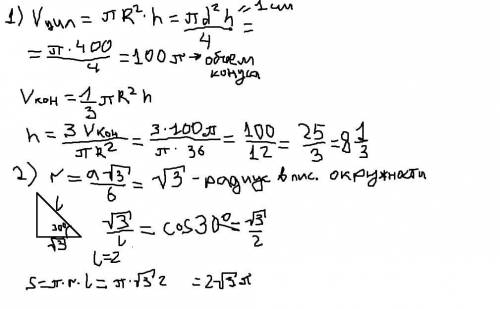 1) Vцил = πR²·h = πd²h/4 = 1 см
= π·400/4 = 100π → объем конуса
Vкон = 1/3 πR²h
h = 3Vкон/πR² = 3·100π/π·36 = 100/12 = 25/3 = 8 1/3
2) r = a√3/6 = √3 - радиус впис. окружности
l
30°
√3
√3/l = cos30° = √3/2
l=2
S = π·r·l = π·√3·2 = 2√3π